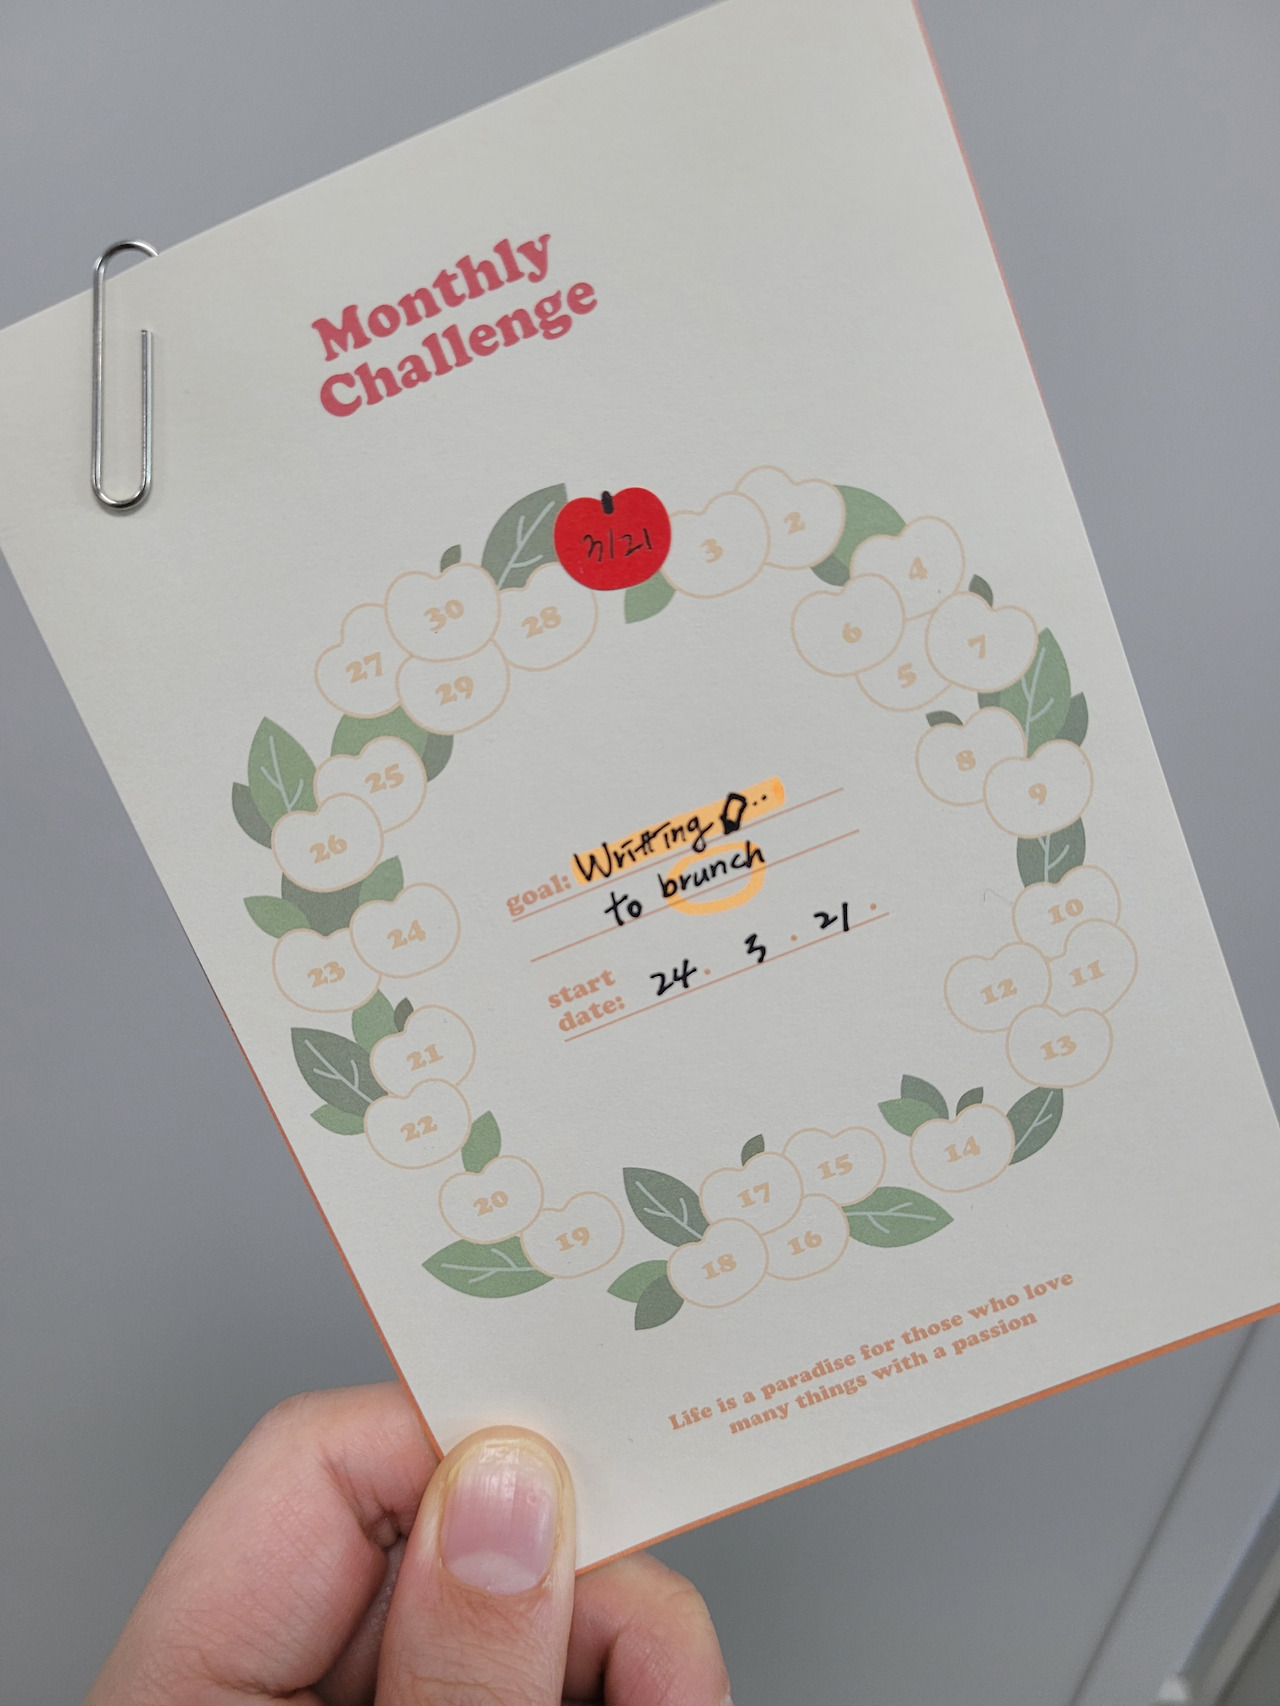 Monthly
Challenge
3/21
2
3
4
5
6
7
8
9
10
11
12
13
14
15
16
17
18
19
20
21
22
23
24
25
26
27
28
29
30
goal: Writting ..
to brunch
start
date: 24. 3. 21.
Life is a paradise for those who love
many things with a passion